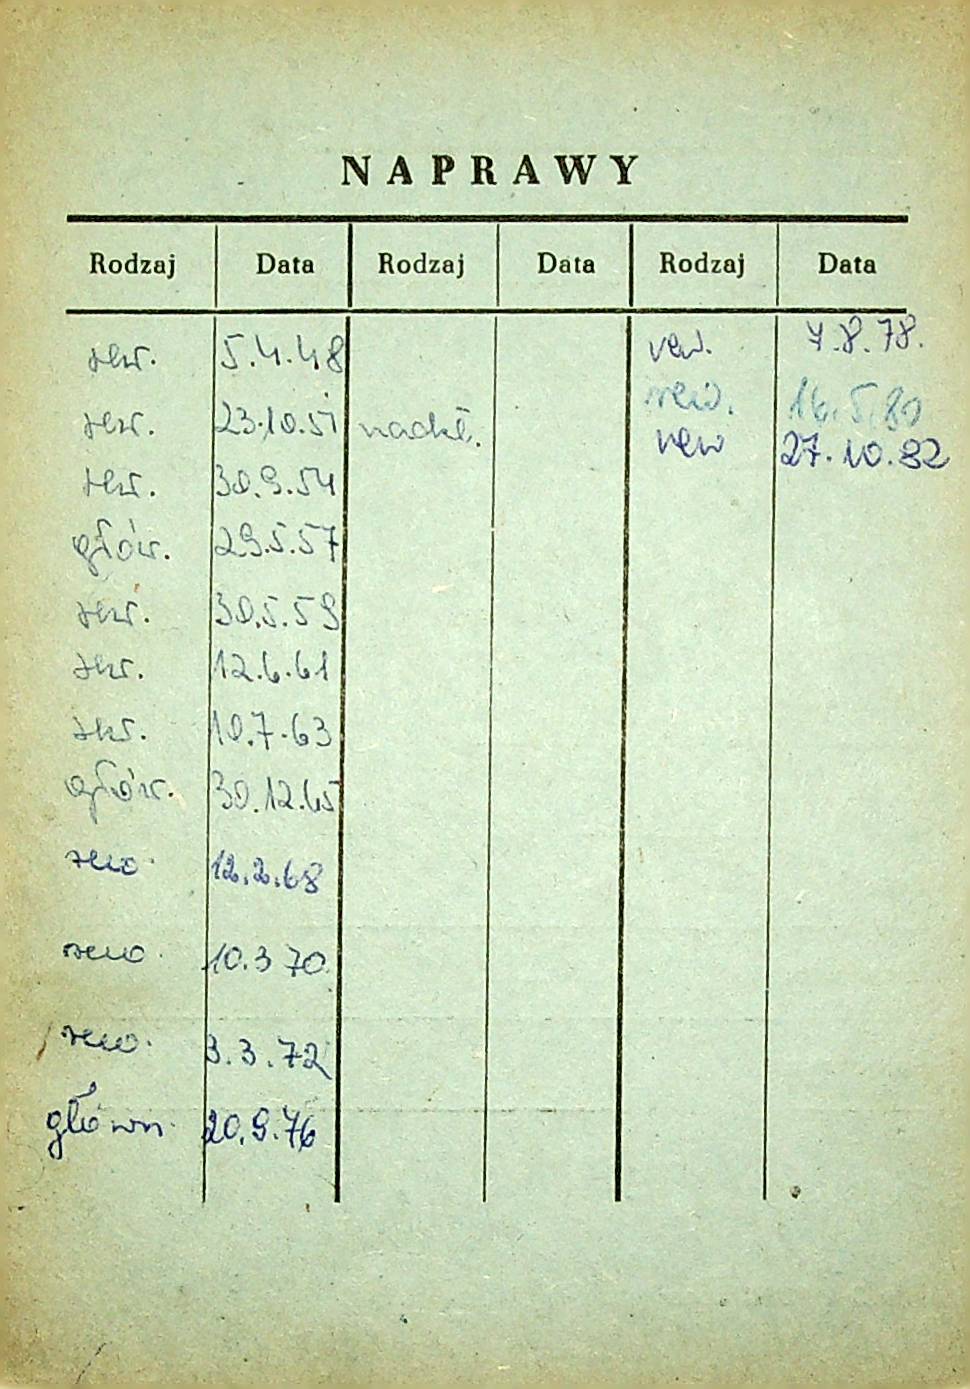 NAPRAWY
Rodzaj Data Rodzaj Data Rodzaj Data
rew. 5.4.48 rew. 7.8.78.
rew. 23.10.51 nadzw. rew. 16.5.80
rew 27.10.82
rew. 30.9.54
głów. 29.5.57
rew. 30.5.59
rew. 12.6.61
rew. 10.7.63
głów. 30.12.65
rew. 12.2.68
rew. 10.3 70
rew. 3.3.72
główn. 20.9.76